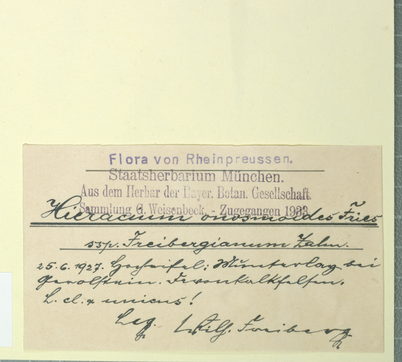 Flora von Rheinpreussen.
Staatsherbarium München.
Aus dem Herbar der Bayer. Botan. Gesellschaft.
Sammlung G. Weisenbeck. - Zugegangen 1938
Hieracium onosmoides Fries
ssp. Freibergianum Zahn.
25.6.1927. Hocheifel: Munterlay bei
Gerolstein. Devonkalkfelsen.
L. cl. & unicus!
Leg. Wilh. Freiberg